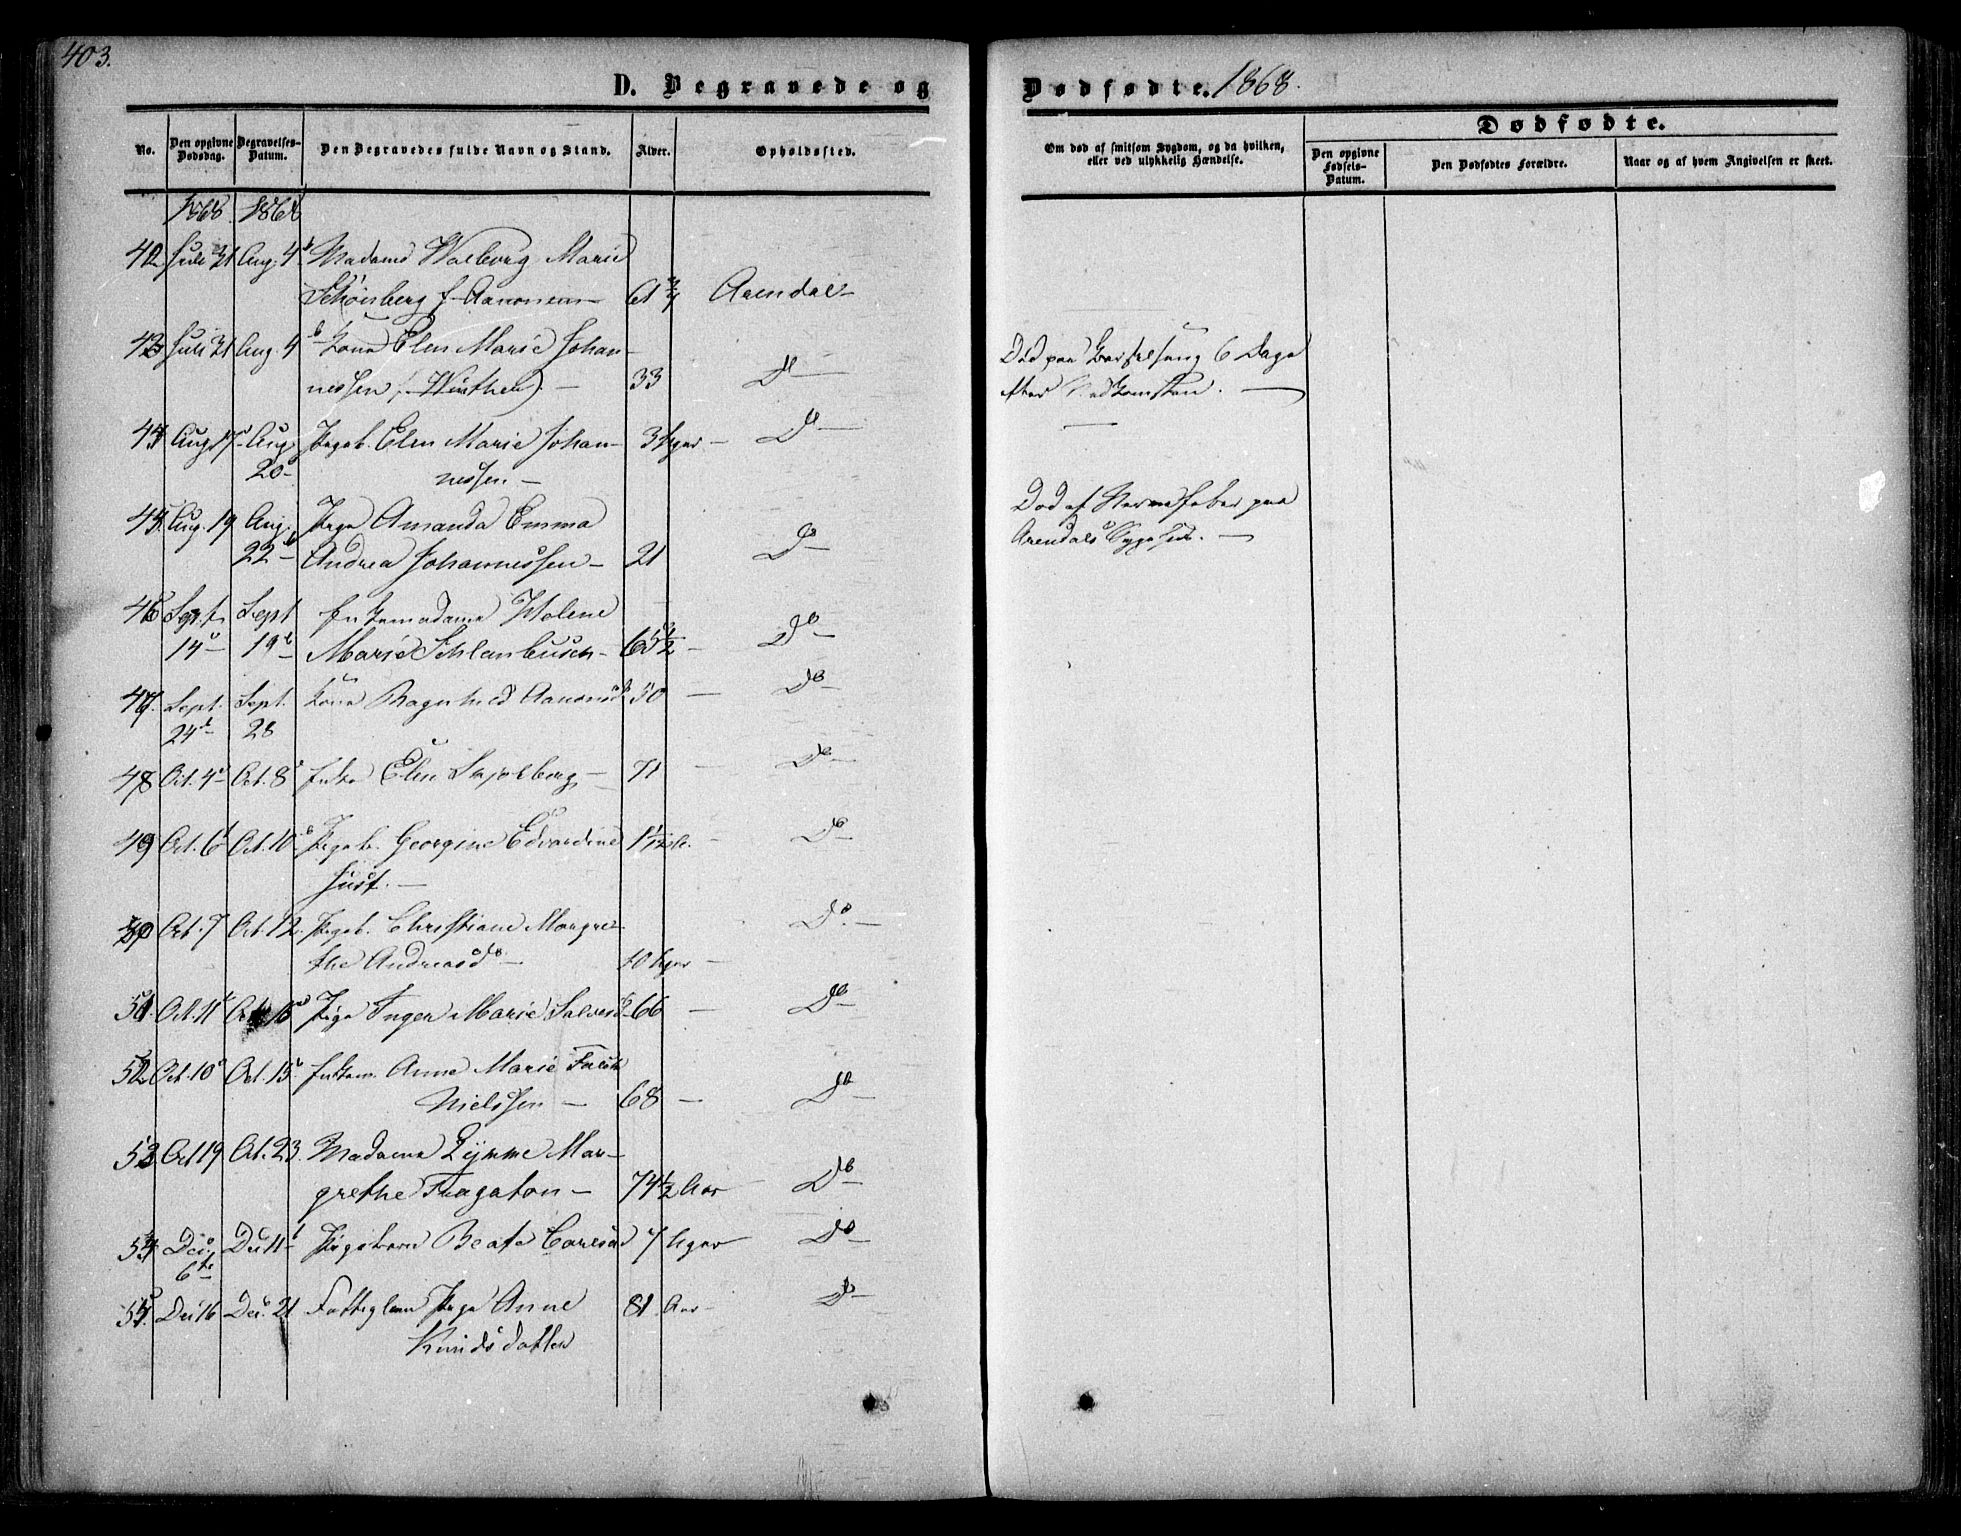 403.
D. Begravede og
Dødfødte. 1868.
No.
Den opgivne Dødsdag.
Begravelses-Datum.
Den Begravedes fulde Navn og Stand.
Alder.
Opholdssted.
Om død af smitsom Sygdom, og da hvilken, eller ved ulykkelig Hændelse.
Dødfødte.
Den opgivne Fødsels-Datum.
Den Dødfødtes Forældre.
Naar og af hvem Angivelsen er skeet.
1868. 1868
42 Juli 31 Aug. 4 Madame Walborg Marie
Schönberg f. Aanonsen 61 3/4 Arendal
43 Juli 31 Aug. 4 Kone Elen Marie Johan-
nessen f. Winther). 33 Do
Død paa Barselseng 6 Dage
efter Nedkomsten.
44 Aug. 17 Aug. 20 Pigeb. Elen Marie Johan-
nessen 3 Uger Do
45. Aug. 19 Aug. 22 Pige Amanda Emma
Andrea Johannessen 21 Do
Død af Nervefeber paa
Arendals Sygehus.
46 Sept. 14 Sept 19 Enkemadame Helene
Marie Schlanbusch 65 1/2 Do
47. Sept. 24 Sept. 28 Kone Ragnhild Aanonsd. 50 Do
48 Oct. 4 Oct. 8 Enke Elen 71 Do
49 Oct. 6 Oct. 10 Pigeb. Georgine Edvardine
Just. 1 1/12 Do
50 Oct. 7 Oct. 12. Pigeb. Christiane Margre-
the Andreasdr 10 Uger Do.
51. Oct. 11 Oct. 16 Pige Inger Marie Salvesd. 66 Do
52 Oct. 10 Oct. 15. Enkem. Anne Marie Falch
Nielssen 68 Do
53 Oct 19 Oct. 23. Madame Mar-
grethe Fragaton 74 1/2 Aar Do
54 Dec. 6te Dec 11 Pigebarn Beate Carlsd 7 Uger Do
55. Dec 16 Dec. 21 Fattiglem Pige Anne
Knudsdatter 81 Aar Do